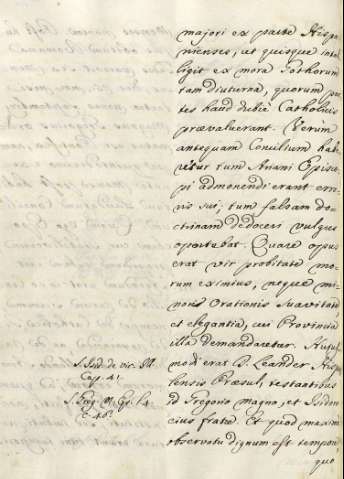 majori ex parte Hispa
nienses, ut quisque intel
ligit ex mora Gothorum
tam diuturna, quorum par
tes haud dubiè Catholicis
prævaluerant. Verùm
antequam Concilium habe
retur tum Ariani Episco
pi admonendi erant erro
ris sui; tum falsam doc
trinam dedoceri vulgus
oportebat. Quare opus
erat vir probitate mo
rum eximius, neque mi
noris Orationis Suavitate,
et elegantia, cui Provincia
illa demandaretur. Hujus
modi erat B. Leander Hispa
lensis Præsul, testantibus
id Gregorio magno, et Isido
ro ejus fratre. Et quod maximè
observatu dignum est tempore
quo
S. Isid. de vir. Ill.
Cap. 41
S. Greg. M.